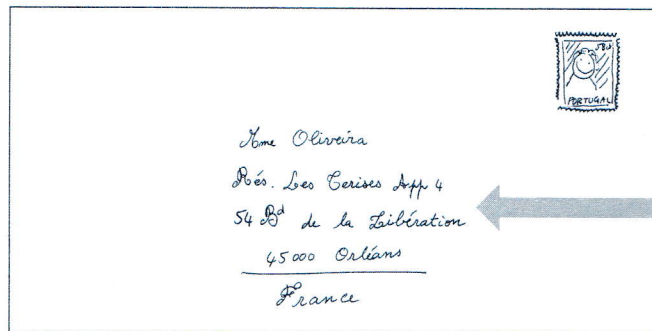 580
PORTUGAL
Mme Oliveira
Rés. Les Cerises App 4
54 Bd de la Libération
45000 Orléans
France